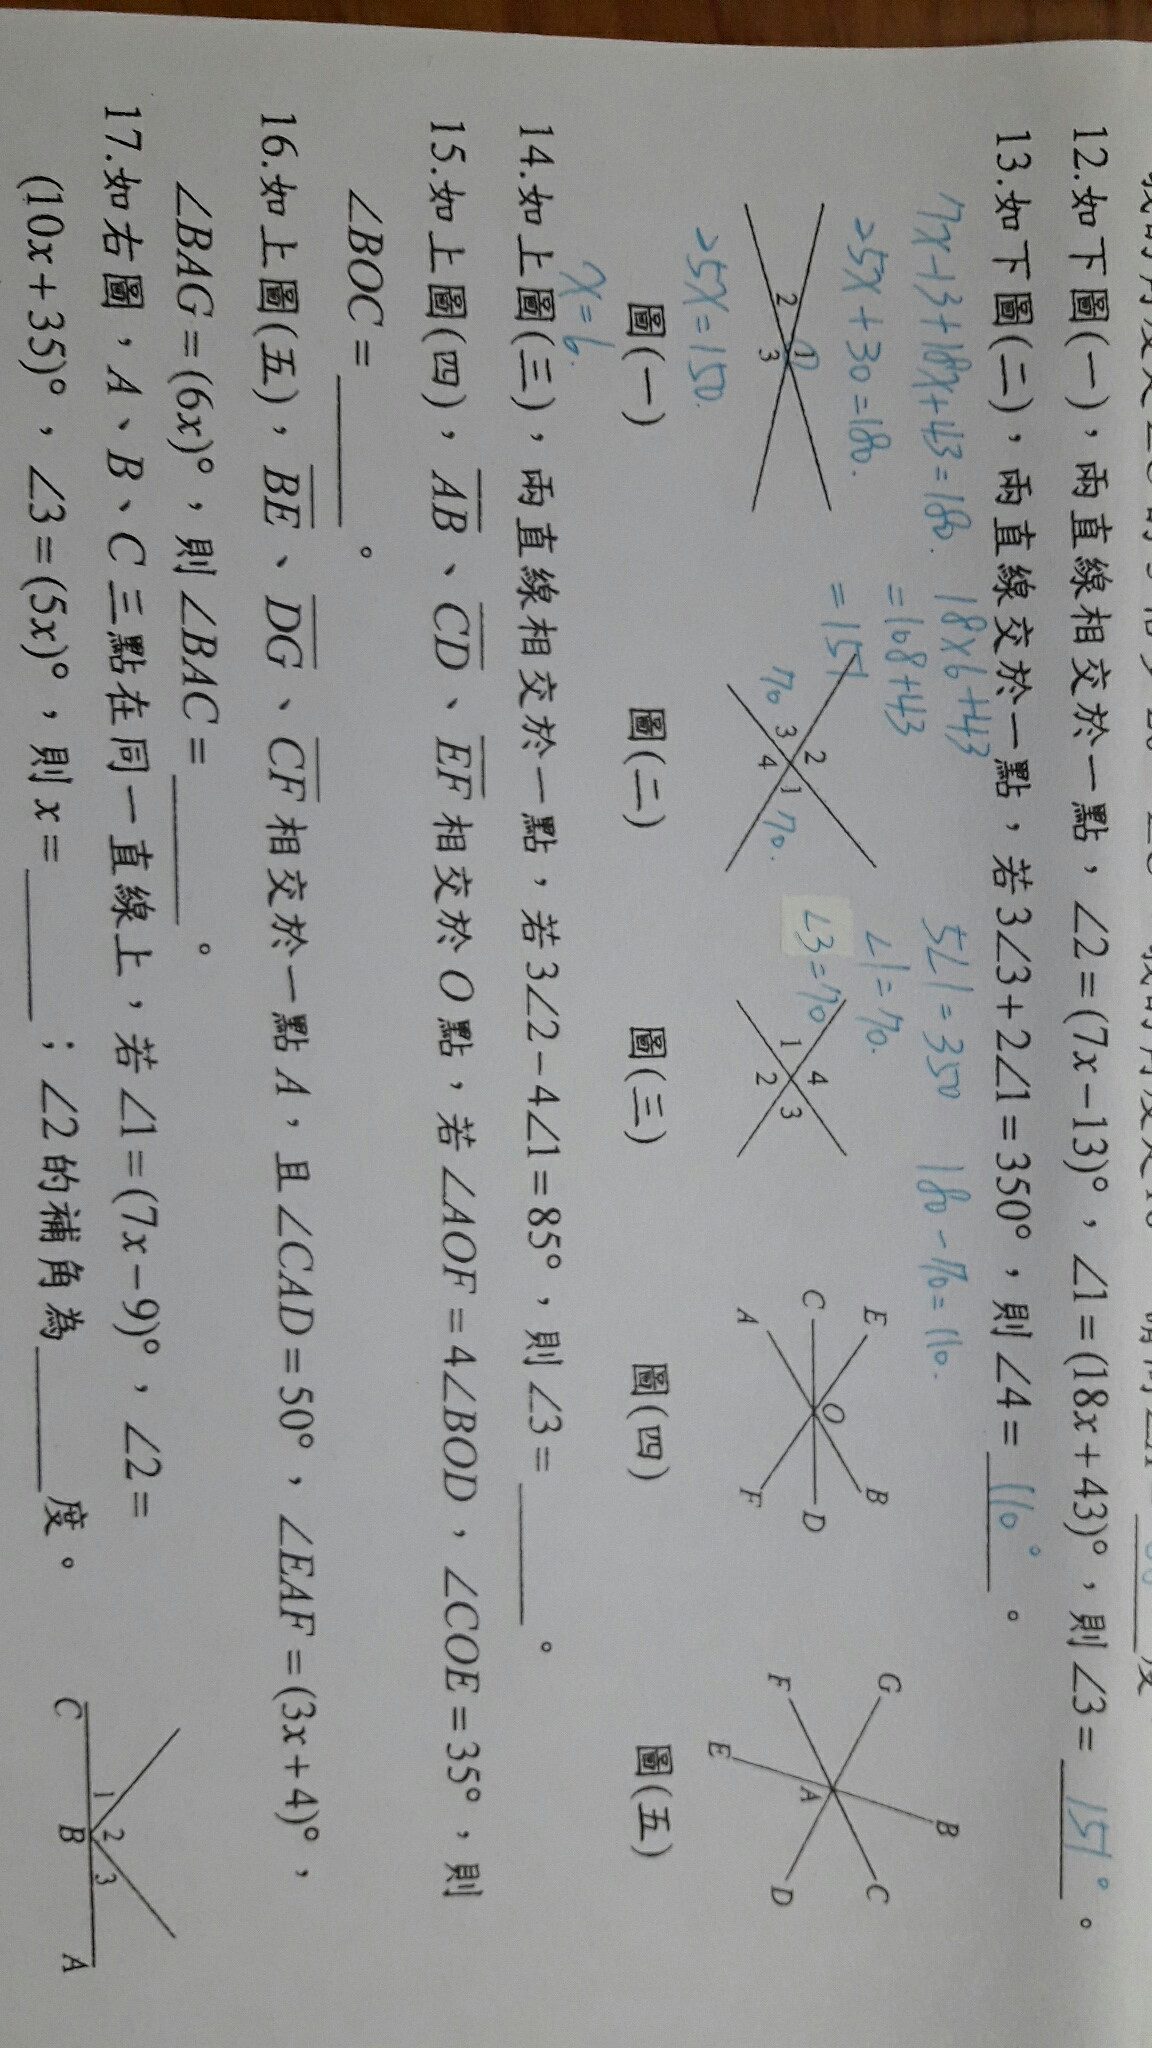 12.如下圖(一)，兩直線相交於一點，∠2=(7x−13)°，∠1=(18x+43)°，則∠3= 151° 。
13.如下圖(二)，兩直線交於一點，若3∠3+2∠1=350°，則∠4= 110° 。
7x-13+18x+43=180. 18x6+43 5∠1=350 180-70=110.
=108+43 ∠1=70.
25x+30=180. =151 ∠3=70
1 2 3
70 3 2 4 1 70.
1 4 2 3
E B C O D A F
G B F C A E D
25x=150.
圖(一) 圖(二) 圖(三) 圖(四) 圖(五)
x=6.
14.如上圖(三)，兩直線相交於一點，若3∠2−4∠1=85°，則∠3= 。
15.如上圖(四)，AB、CD、EF相交於O點，若∠AOF=4∠BOD，∠COE=35°，則
∠BOC= 。
16.如上圖(五)，BE、DG、CF相交於一點A，且∠CAD=50°，∠EAF=(3x+4)°，
∠BAG=(6x)°，則∠BAC= 。
17.如右圖，A、B、C三點在同一直線上，若∠1=(7x−9)°，∠2=
(10x+35)°，∠3=(5x)°，則x= ；∠2的補角為 度。
1 2 3
C B A